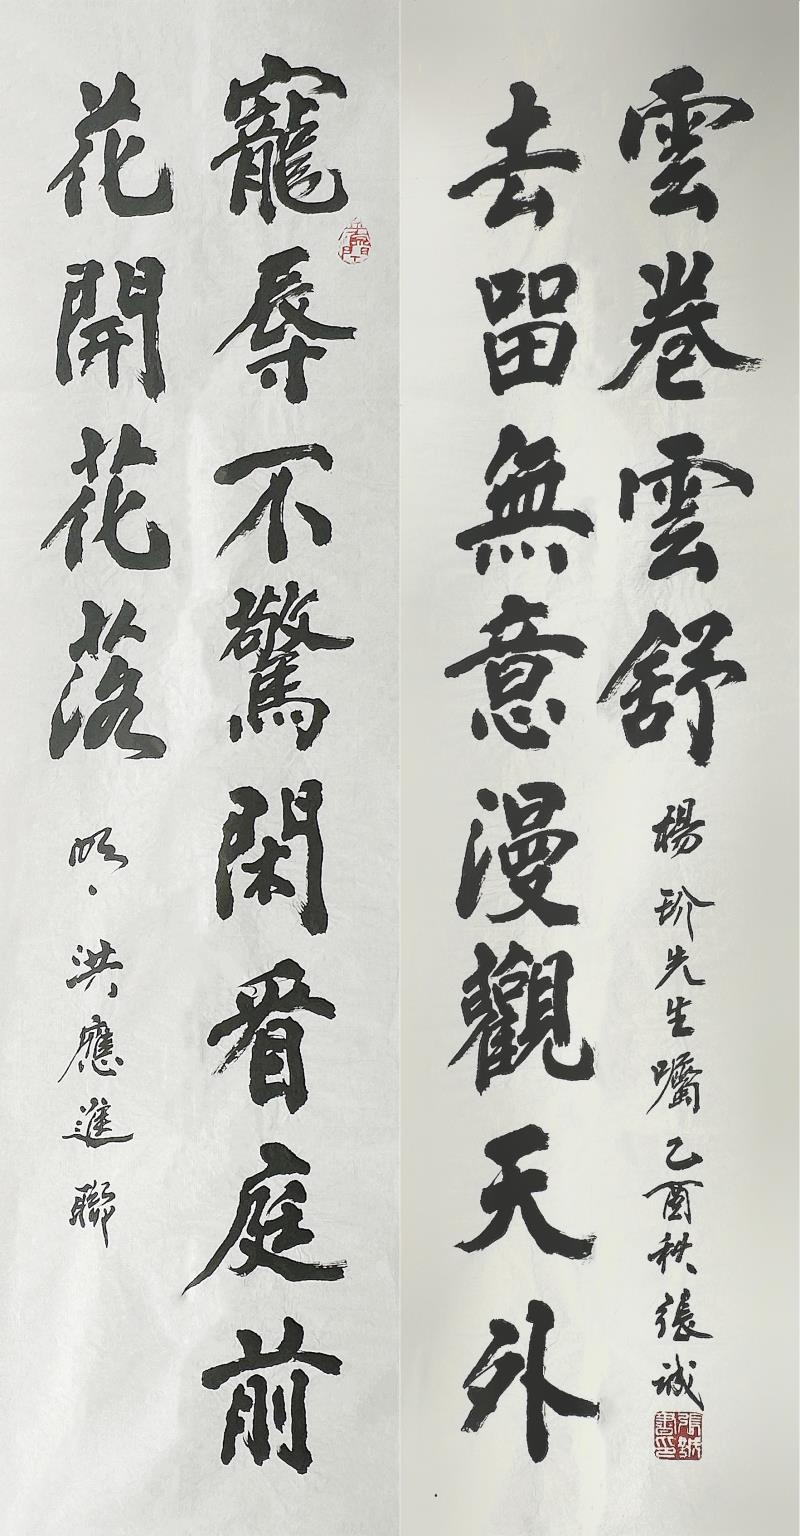 寵辱不驚閑看庭前
花開花落
明·洪應進聯
去留無意漫觀天外
雲卷雲舒
楊玠先生囑乙酉秋張誠
張誠書印